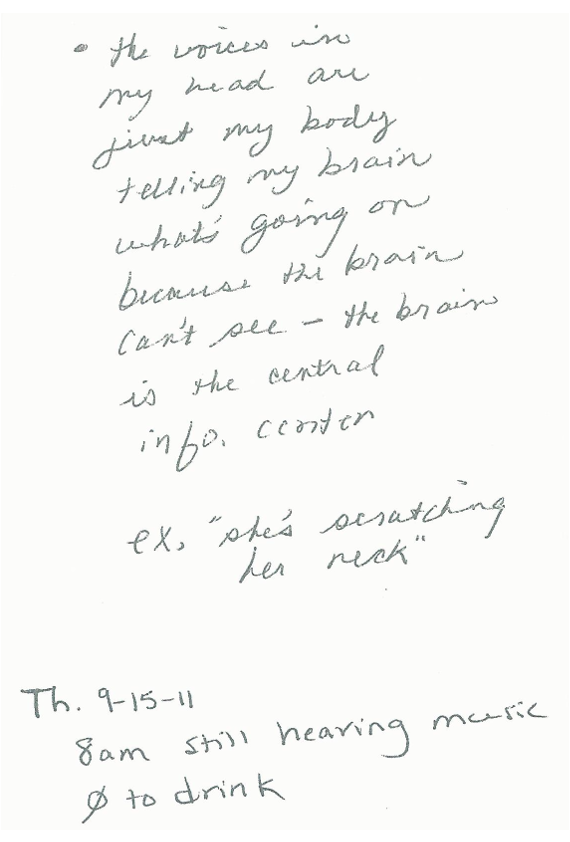 • the voices in
my head are
just my body
telling my brain
what's going on
because the brain
can't see – the brain
is the central
info. center
ex. "she's scratching
her neck"
Th. 9-15-11
8am still hearing music
∅ to drink